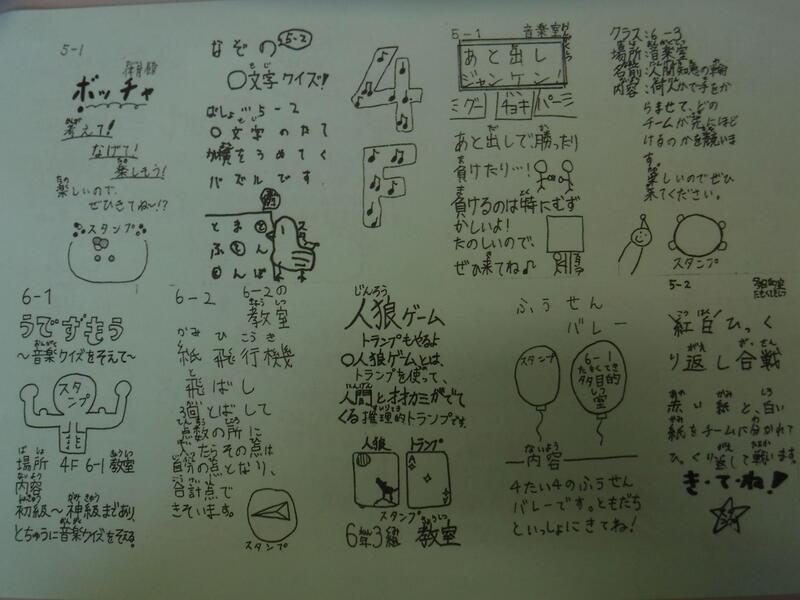 5-1
体育館
ボッチャ
考えて!
なげて!
楽しもう!
楽しいので、
ぜひきてね~!?
スタンプ
なぞの
5-2
〇文字クイズ!
ばしょ…5-2
〇文字のたて
か横をうめてく
パズルです
とまと
ふとん
とんぼ
スタンプ
4
F
5-1
音楽室
あと出し
ジャンケン!
グー
チョキ
パー
あと出しで勝ったり
負けたり…!
負けるのは特にむず
かしいよ!
たのしいので、
ぜひ来てね♪
クラス:6-3
場所:音楽室
名前:人間知恵の輪
内容:何人かで手をか
らませて、どの
チームが先にほど
けるのかを競いま
す。
楽しいのでぜひ
来てください。
スタンプ
6-1
うでずもう
~音楽クイズをそえて~
スタンプ
場所 4F 6-1 教室
内容
初級~神級まであり、
とちゅうに音楽クイズをそえる。
6-2
6-2の
教室
紙飛行機
飛ばし
3回とばして
点数の所に
入ったらその点は
自分の点となり、
合計点で
きそいます。
スタンプ
人狼ゲーム
トランプもやるよ
〇人狼ゲームとは、
トランプを使って、
人間とオオカミがでて
くる推理的トランプです。
人狼
トランプ
A
スタンプ
6年3組 教室
ふうせん
バレー
スタンプ
6-1
多目的
室
内容
4たい4のふうせん
バレーです。ともだち
といっしょにきてね!
5-2
紅白ひっく
り返し合戦
赤い紙と、白い
紙をチームに分かれて
ひっくり返して戦います。
き・て・ね!